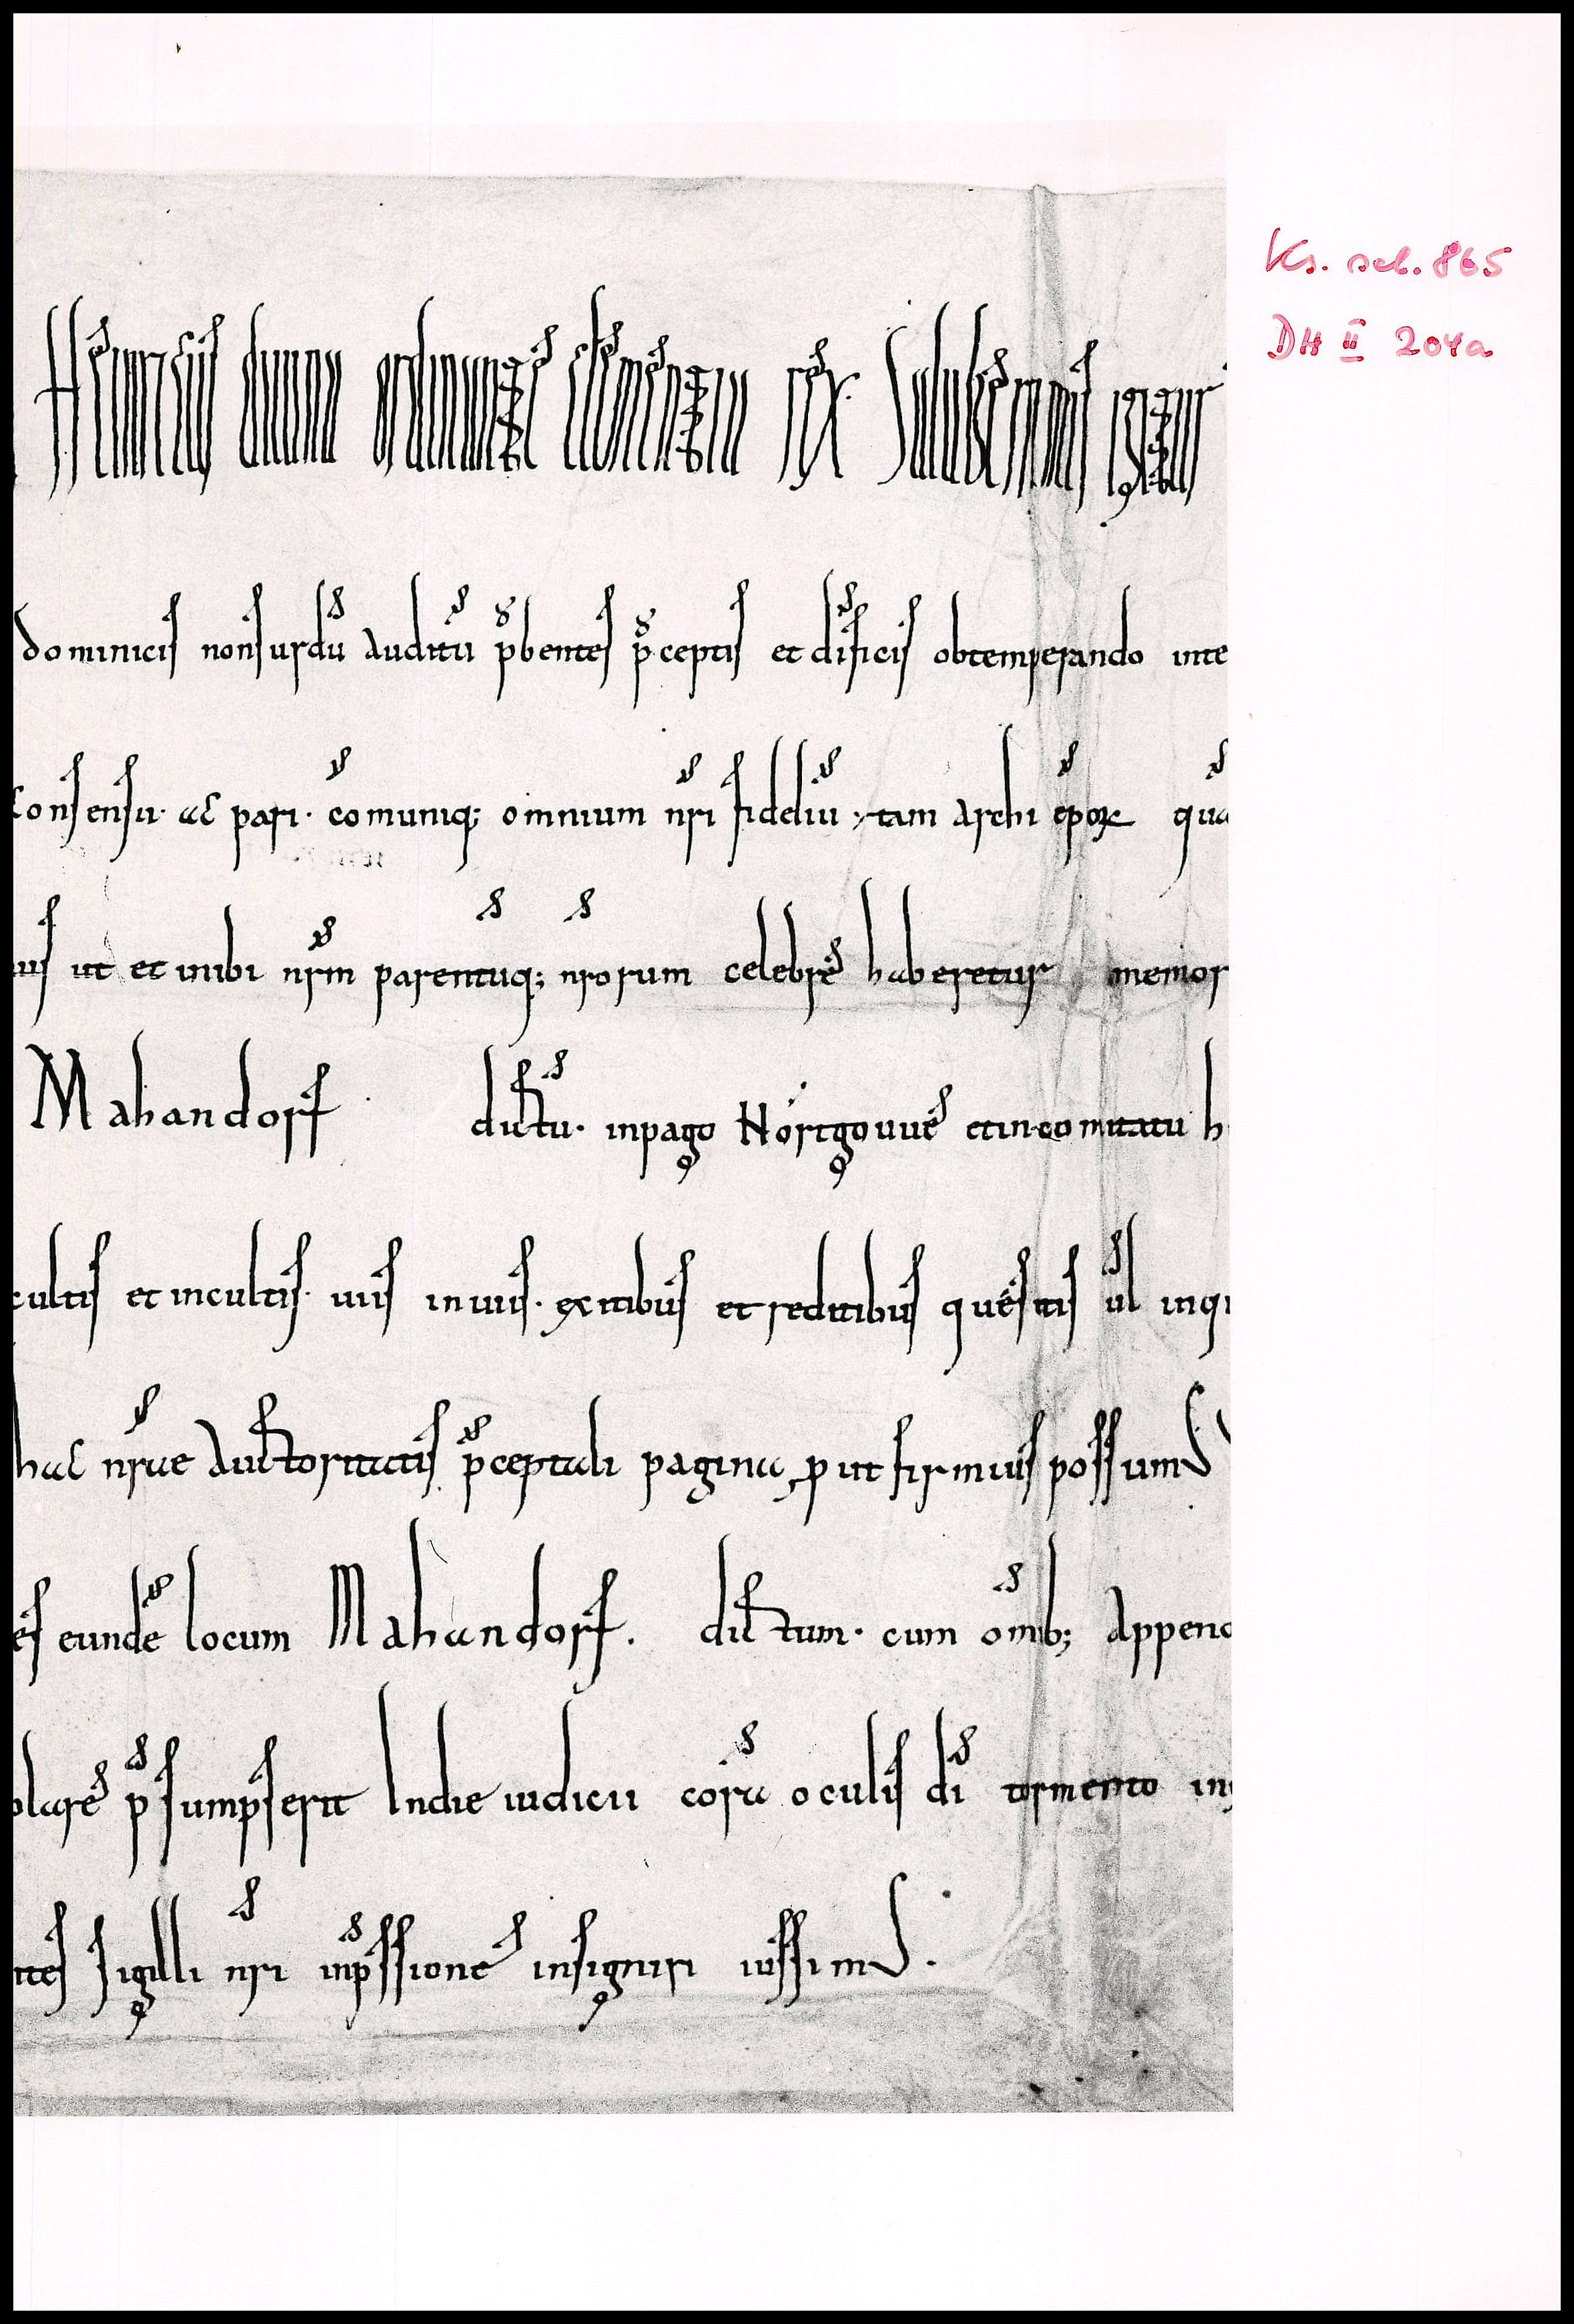 Ks. sel. 865
DH II 204a
Heinricus diuina ordinante clementia rex Saluberrimis igitur
dominicis non surdū auditū p̄bentes p̄ceptis et dīficis obtemperando inte
consensu. ac pari. cōmuniq; omnium n̄ri fideliū, tam archi ep̄oꝝ quā
uis ut et inibi n̄rm parentūq; n̄rorum celebre haberetur memor
Mahandorf dictū. in pago Nortgouue et in comitatu h
cultis et incultis. uiis inuiis. exitibus et reditibus quesitis ul̄ inqu
hac n̄rae auctoritatis p̄ceptali pagina, put firmius possum
es eundē locum Mahandorf. dictum. cum om̄ib; append
olare p̄sumpserit In die iudicii corā oculis dī tormento in
ntes sigilli n̄ri inp̄ssione insigniri iussim.